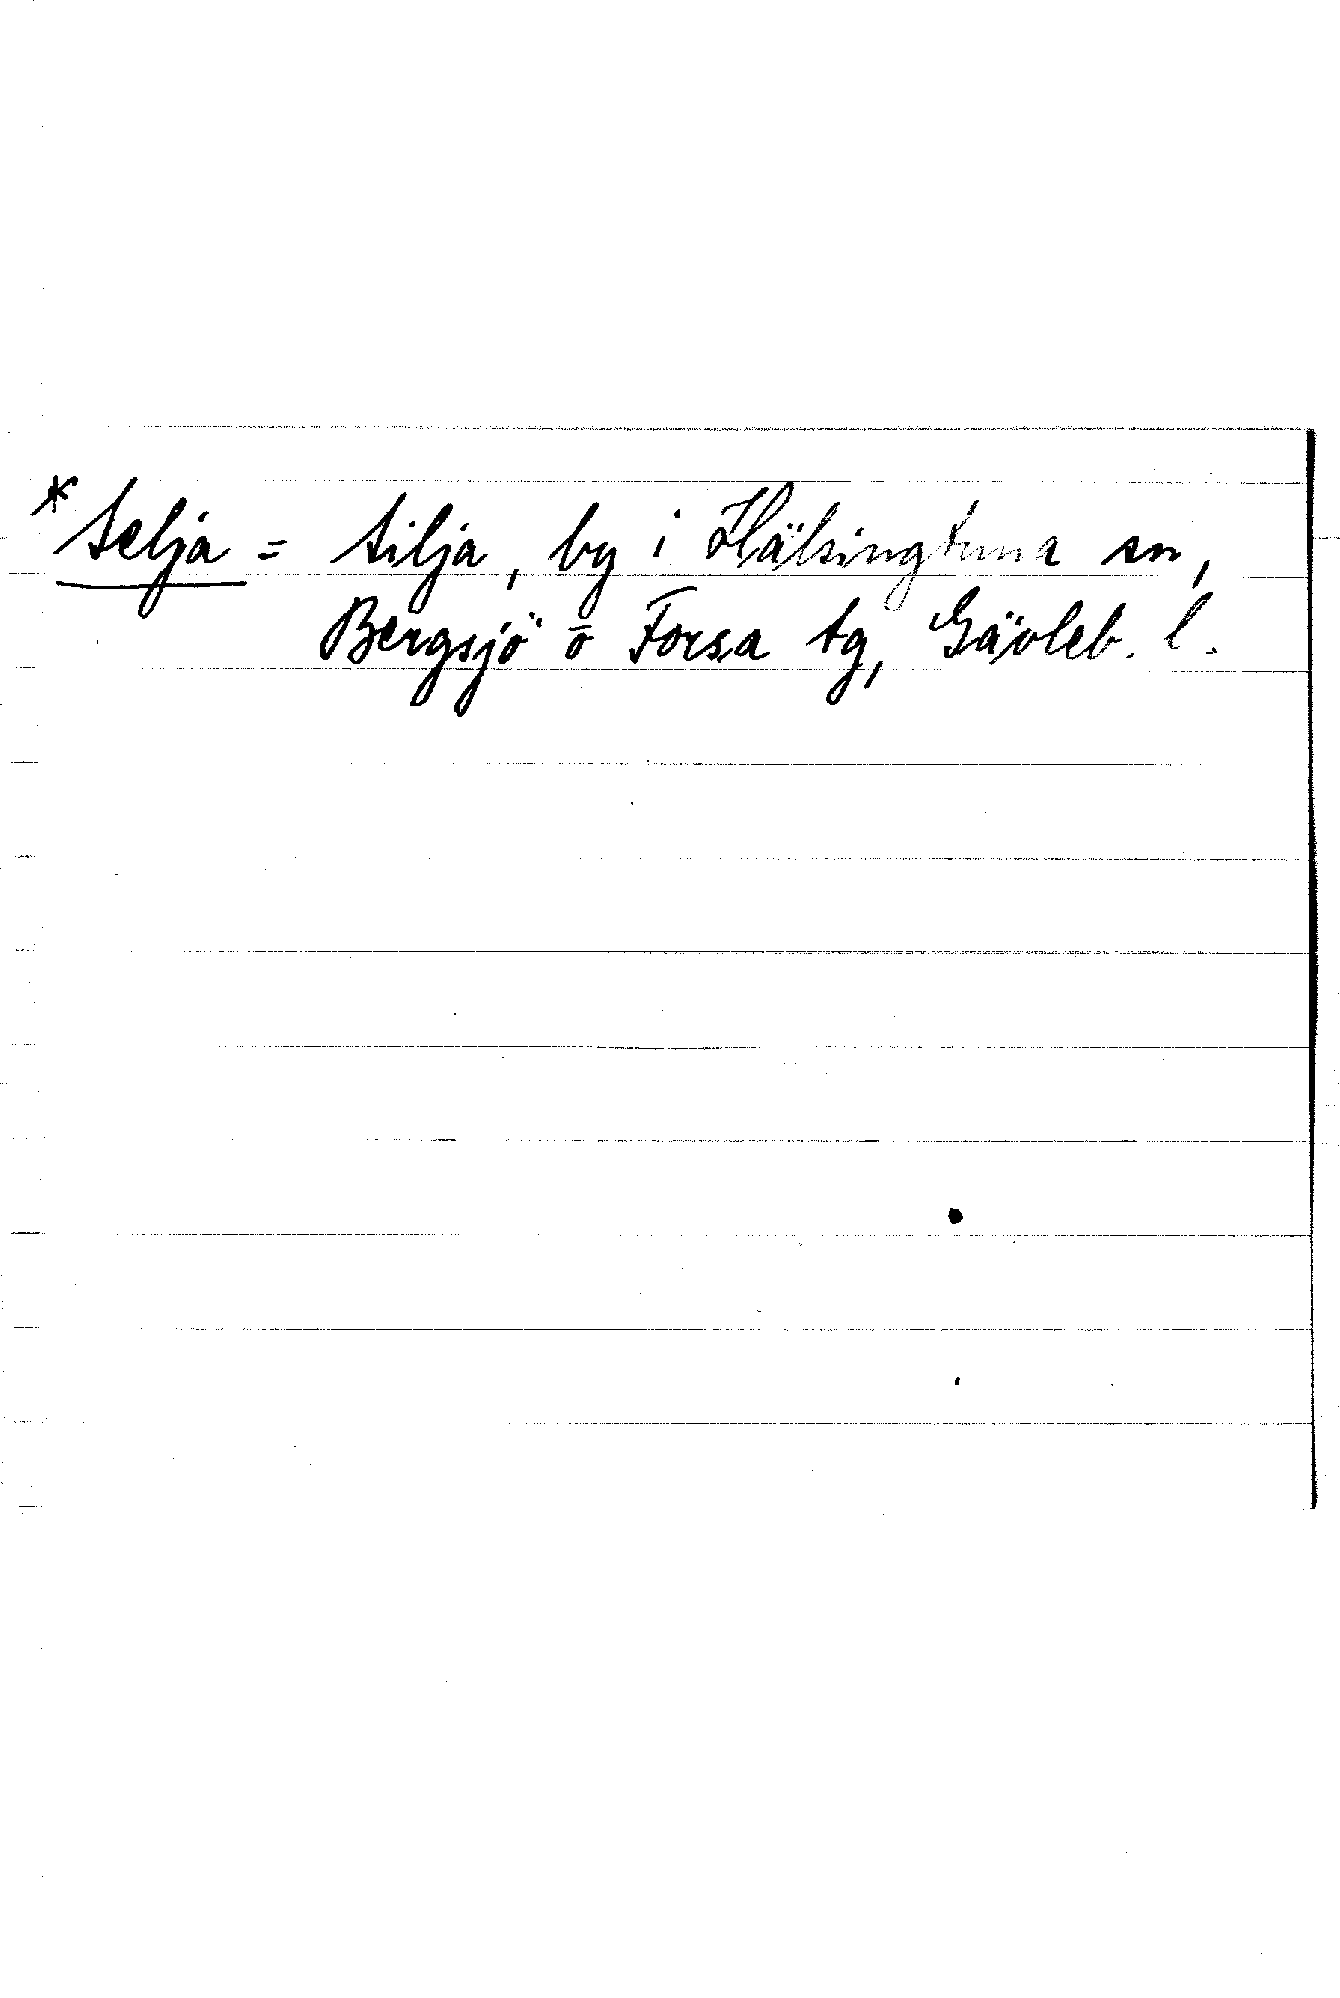 * Selja = Silja, by i Hälsingtuna sn,
Bergsjö o Forsa tg, Gävleb. l.